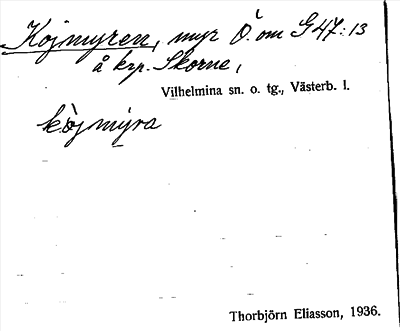 Kojmyren, myr Ö. om G 47:13
å krp. Skorne,
Vilhelmina sn. o. tg., Västerb. l.
kòjmýra
Thorbjörn Eliasson, 1936.